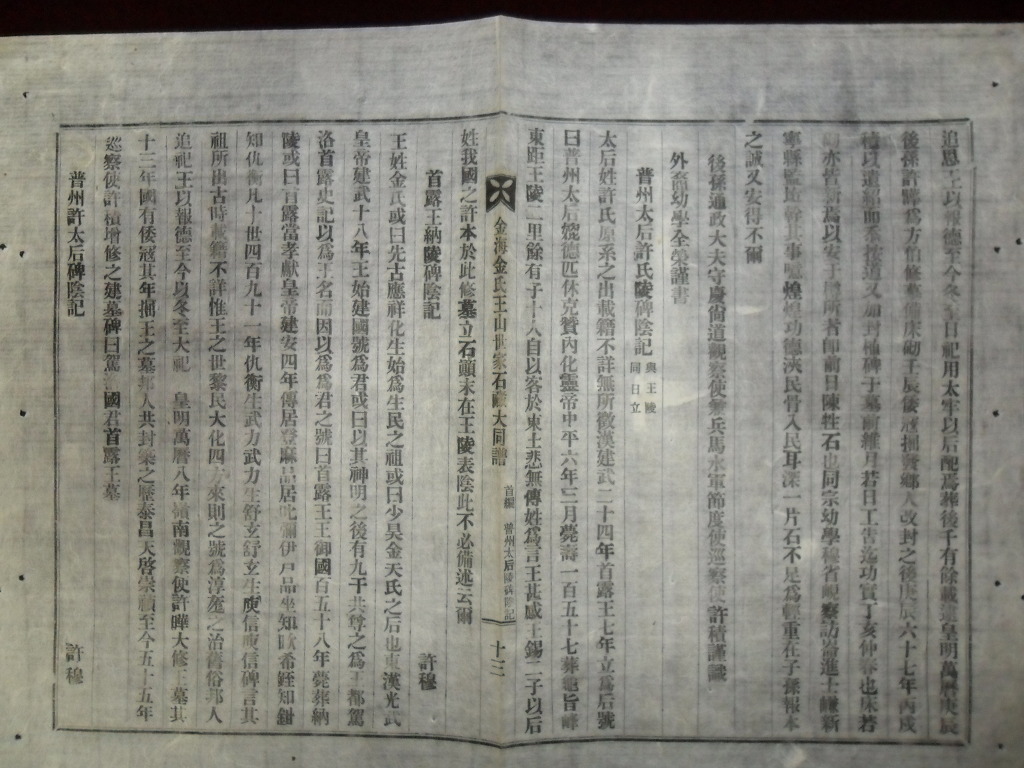 追思王以報德至今冬至日祀用太牢以后配焉葬後千有餘載逮皇明萬曆庚辰
後孫許曄為方伯修墓備床砌壬辰倭寇掘發鄉人改封之後庚辰六十七年丙戌
德以遺績面承接道又加封惟碑于墓前維月若日工告迄功實丁亥仲春也床若
亦皆為以安于所者即前日陳牲石也同宗幼學穆省峴察訪崙進士嵊新
寧縣監地幹其事噫煌煌功德浹民骨入民耳深一片石不足為輕重在子孫報本
之誠又安得不爾
後孫通政大夫守慶尙道觀察使兼兵馬水軍節度使巡察使許積謹識
外裔幼學全榮謹書
普州太后許氏陵碑陰記 與王陵同日立
太后姓許氏原系之出載籍不詳無所徵漢建武二十四年首露王七年立為后號
曰普州太后媲德匹休克贊內化靈帝中平六年三月薨壽一百五十七葬龜旨峰
東距王陵一里餘有子十人自以客於東土悲無傳姓為言王甚感王錫二子以后
姓我國之許本於此修墓立石顚末在王陵表陰此不必備述云爾
金海金氏王山世家石璿大同譜 首編 普州太后陵碑陰記 十三
首露王納陵碑陰記 許穆
王姓金氏或曰先古應祥化生始為生民之祖或曰少昊金天氏之后也東漢光武
皇帝建武十八年王始建國號為君或曰以其神明之後有九干共尊之為王都駕
洛首露史記以為王名而因以為為君之號曰首露王王御國百五十八年薨葬納
陵或曰首露當孝獻皇帝建安四年傳居登麻品居叱彌伊尸品坐知吹希銍知鉗
知仇衡凡十世四百九十一年仇衡生武力武力生舒玄舒玄生庾信庾信碑言其
祖所出古時載籍不詳惟王之世黎民大化四方來則之號為淳厖之治舊俗邦人
追祀王以報德至今以冬至大祀 皇明萬曆八年嶺南觀察使許曄大修王墓其
十三年國有倭寇其年掘王之墓邦人共封築之歷泰昌天啓崇禎至今五十五年
巡察使許積增修之建墓碑曰駕洛國君首露王墓
普州許太后碑陰記 許穆